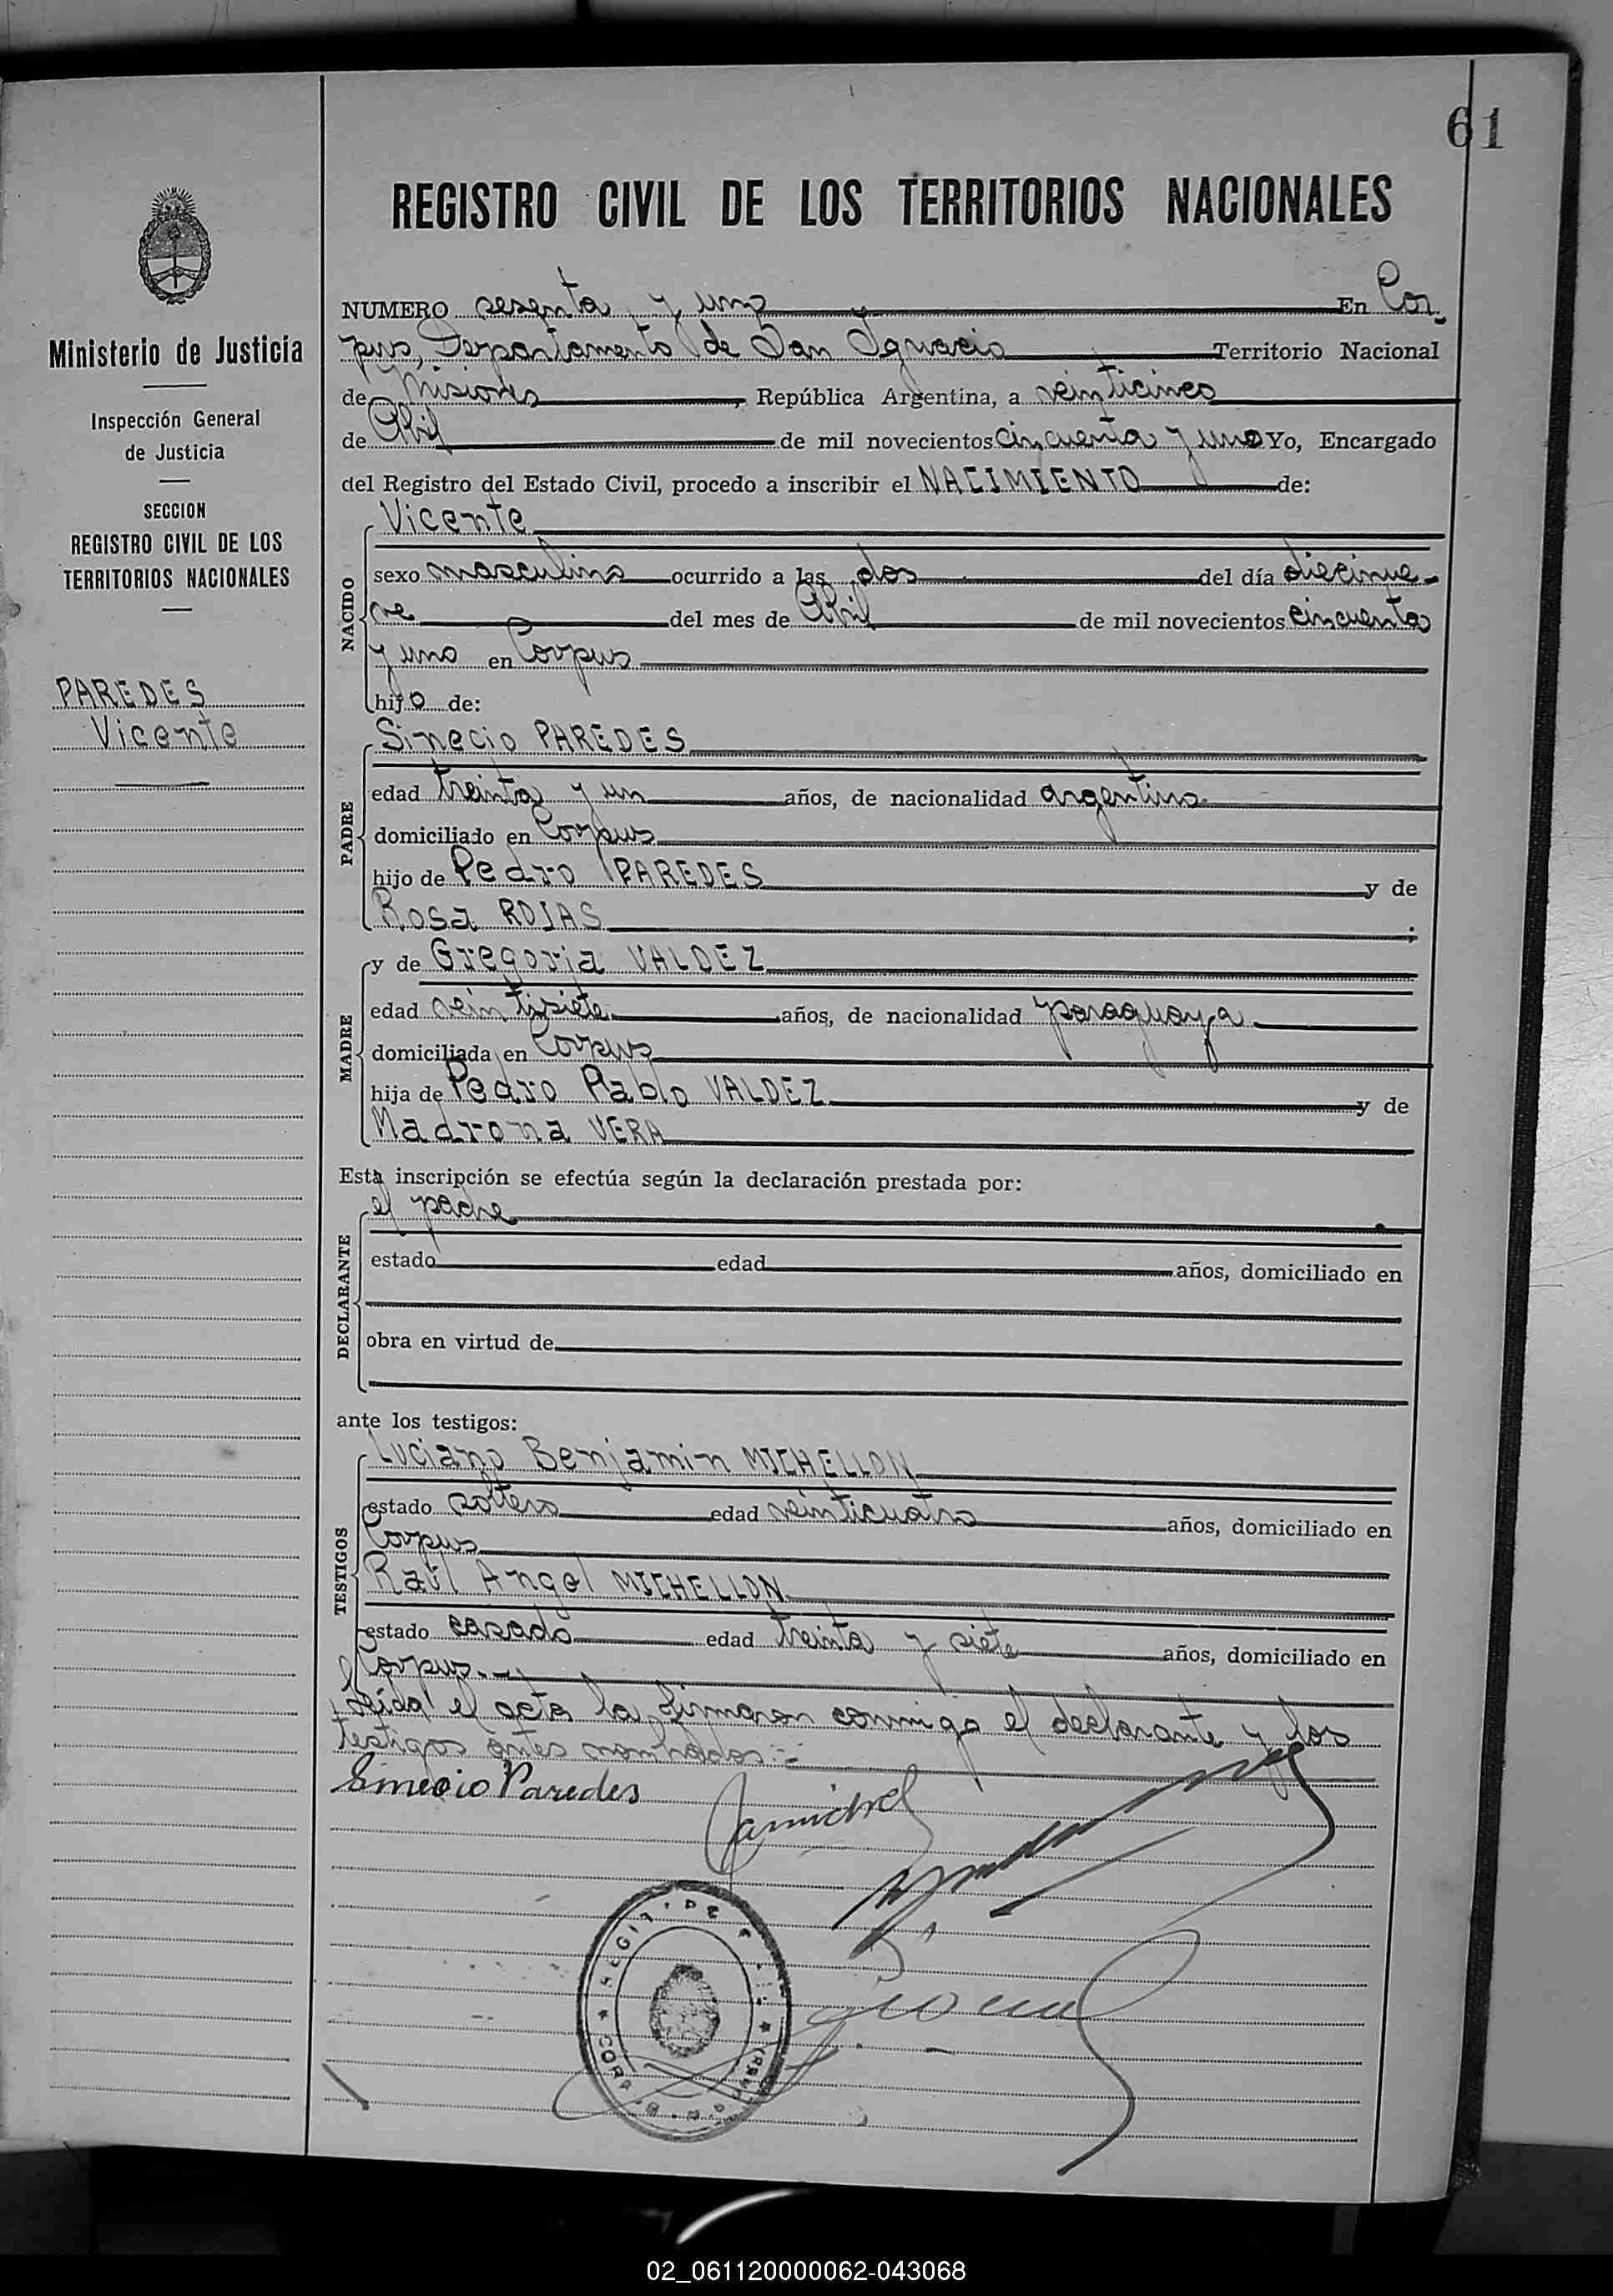 61
REGISTRO CIVIL DE LOS TERRITORIOS NACIONALES
Ministerio de Justicia
Inspección General
de Justicia
SECCION
REGISTRO CIVIL DE LOS
TERRITORIOS NACIONALES
PAREDES
Vicente
NUMERO sesenta y uno En Cor-
pus, Departamento de San Ignacio Territorio Nacional
de Misiones, República Argentina, a veinticinco
de Abril de mil novecientos cincuenta y uno Yo, Encargado
del Registro del Estado Civil, procedo a inscribir el NACIMIENTO de:
NACIDO
Vicente
sexo masculino ocurrido a las dos del día diecinue-
ve del mes de Abril de mil novecientos cincuenta
y uno en Corpus
hijo de:
PADRE
Sinecio PAREDES
edad treinta y un años, de nacionalidad argentino
domiciliado en Corpus
hijo de Pedro PAREDES y de
Rosa ROJAS ;
MADRE
y de Gregoria VALDEZ
edad veintisiete años, de nacionalidad paraguaya
domiciliada en Corpus
hija de Pedro Pablo VALDEZ y de
Madrona VERA
Esta inscripción se efectúa según la declaración prestada por:
DECLARANTE
el padre
estado edad años, domiciliado en
obra en virtud de
ante los testigos:
TESTIGOS
Luciano Benjamin MICHELLON
estado soltero edad veinticuatro años, domiciliado en
Corpus
Raúl Angel MICHELLON
estado casado edad treinta y siete años, domiciliado en
Corpus.-
Leída el acta la firmaron conmigo el declarante y los
testigos antes nombrados.-
Sinecio Paredes
02_061120000062-043068